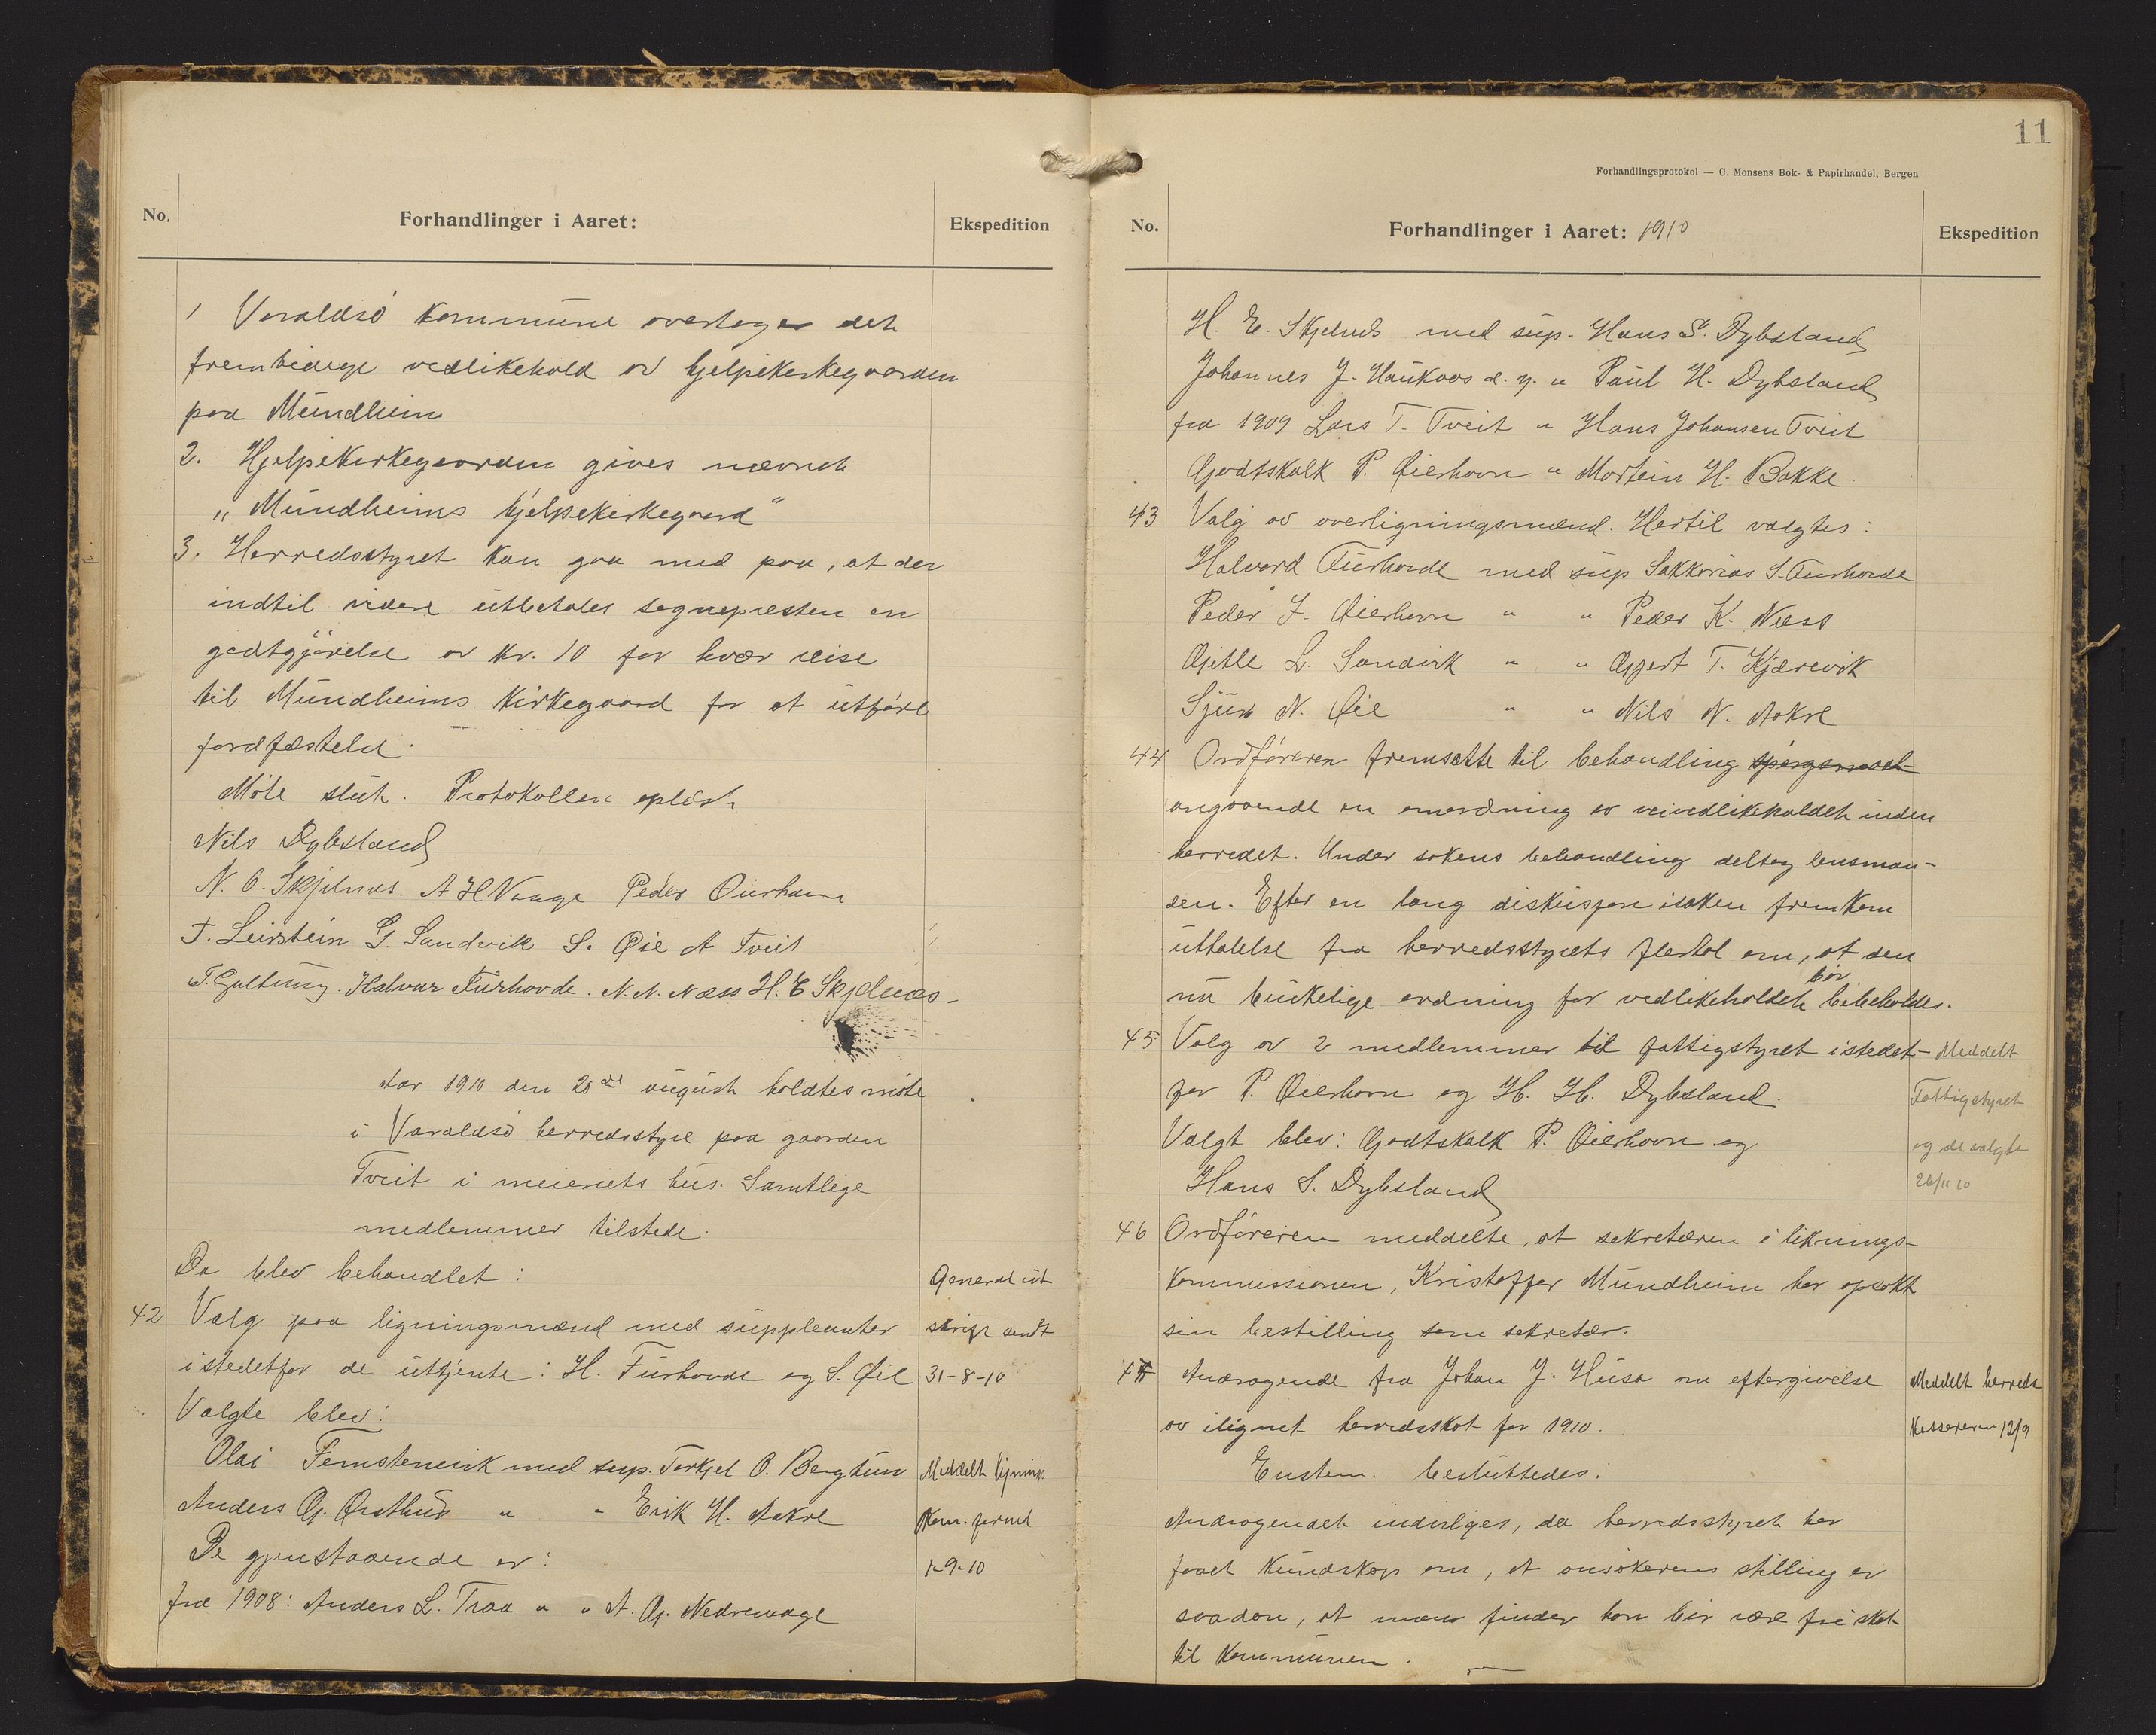 No.
Forhandlinger i Aaret:
Ekspedition
1 Varaldsö kommune overtager det
fremtidige vedlikehold av hjelpekirkegaarden
paa Mundheim
2. Hjelpekirkegaarden gives navnet
„Mundheims hjelpekirkegaard“
3. Herredsstyret kan gaa med paa, at der
indtil videre utbetales sognepræsten en
godtgjörelse av Kr. 10 for hver reise
til Mundheims kirkegaard for at utföre
jordfæstelse.
Möte slut. Protokollen oplæst
Nils Dybsland
N. O. Skjelnes. A H Vaage Peder Øierhavn
T. Leirstein G. Sandvik S. Øie A Tveit
T. Galtung. Halvar Furhovde. N. N. Næss H. E Skjelnæs-
Aar 1910 den 20de august holdtes möte
i Varaldsö herredsstyre paa gaarden
Tveit i meieriets hus. Samtlige
medlemmer tilstede.
Da blev behandlet:
42 Valg paa ligningsmænd med suppleanter
istedetfor de uttjente: H. Furhovde og S. Øie
Valgte blev:
Olai Femstenevik med sup. Torkjel O. Bergtun
Anders G. Østhus " " Erik H. Aakre
De gjenstaaende er:
fra 1908: Anders L. Traa " " A. G. Nedrevaage
General ut
skrift sendt
31-8-10
Meddelt lignings
Kom. formd
1-9-10
11
Forhandlingsprotokol — C. Monsens Bok- & Papirhandel, Bergen
No.
Forhandlinger i Aaret: 1910
Ekspedition
H. E. Skjelnes med sup. Hans S. Dybsland
Johannes J. Haukaas d. y. " Paul H. Dybsland
fra 1909 Lars T. Tveit " Hans Johansen Tveit
Godtskalk P. Øierhavn " Mostein H. Bakke.
43 Valg av overligningsmænd. Hertil valgtes:
Halvard Furhovde med sup Sakkarias S. Furhovde
Peder J. Øierhavn " " Peder K. Næss
Gitle L. Sandvik " " Gjert T. Kjærevik
Sjur N. Øie " " Nils N. Aakre
44 Ordföreren fremsatte til behandling spörgsmaal
angaaende en omordning av veivedlikeholdet inden
herredet. Under sakens behandling deltog lensman-
den. Efter en lang diskusjon i saken fremkom
uttalelse fra herredsstyrets flertal om, at den
nu brukelige ordning for vedlikeholdet bör bibeholdes.
45 Valg av 2 medlemmer til fattigstyret istedet-
for P. Øierhavn og H. H. Dybsland.
Valgt blev: Godtskalk P. Øierhavn og
Hans S. Dybsland
Meddelt
Fattigstyret
og de valgte
26/11 10
46 Ordföreren meddelte, at sekretæren i liknings-
kommissionen, Kristoffer Mundheim har opsakt
sin bestilling som sekretær.
47 Andragende fra Johan J. Husa om eftergivelse
av ilignet herredsskat for 1910.
Enstem. besluttedes:
Andragendet indvilges, da herredsstyret har
faaet kundskap om, at ansökerens stilling er
saadan, at man finder han bör være fri skat
til kommunen.
Meddelt herreds
kassereren 12/9